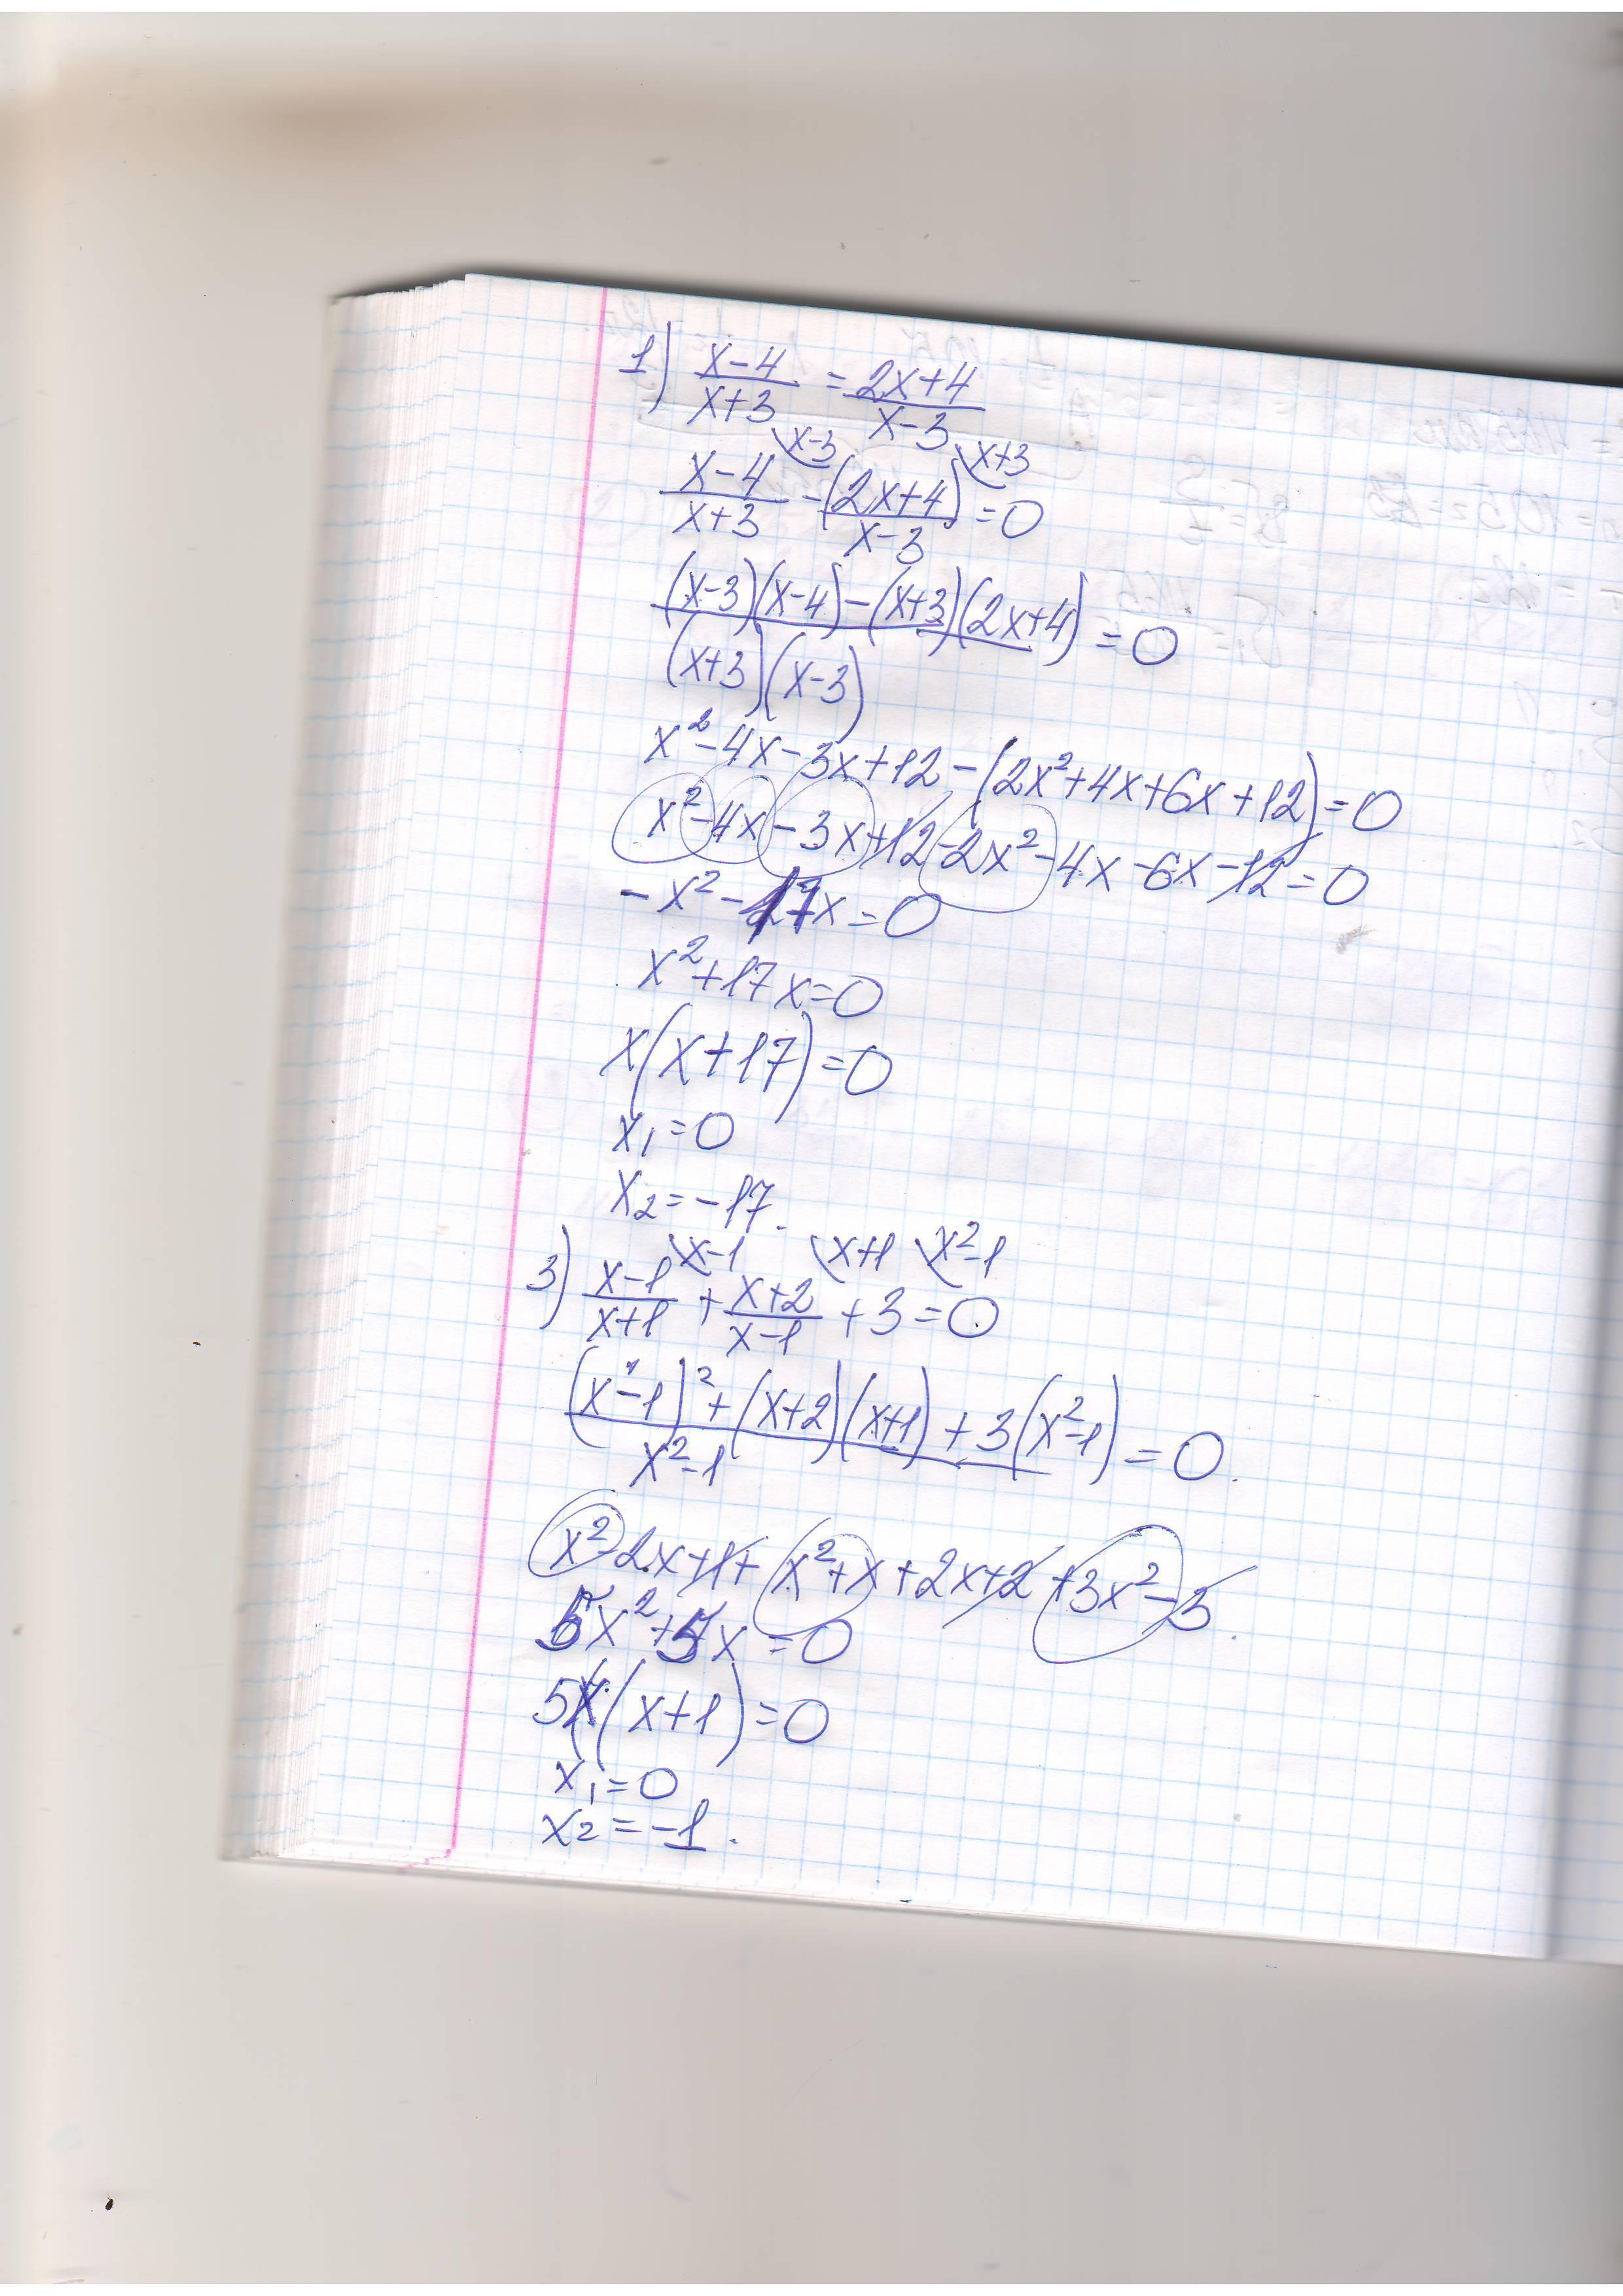 1) (x-4)/(x+3) = (2x+4)/(x-3)
x-3 x+3
(x-4)/(x+3) - (2x+4)/(x-3) = 0
((x-3)(x-4)-(x+3)(2x+4))/((x+3)(x-3)) = 0
x²-4x-3x+12-(2x²+4x+6x+12)=0
x²-4x-3x+12-2x²-4x-6x-12=0
-x²-17x=0
x²+17x=0
x(x+17)=0
x₁=0
x₂=-17.
x-1 x+1 x²-1
3) (x-1)/(x+1) + (x+2)/(x-1) + 3 = 0
((x-1)²+(x+2)(x+1)+3(x²-1))/(x²-1) = 0.
x²-2x+1+x²+x+2x+2+3x²-3.
5x²+5x=0
5x(x+1)=0
x₁=0
x₂=-1.